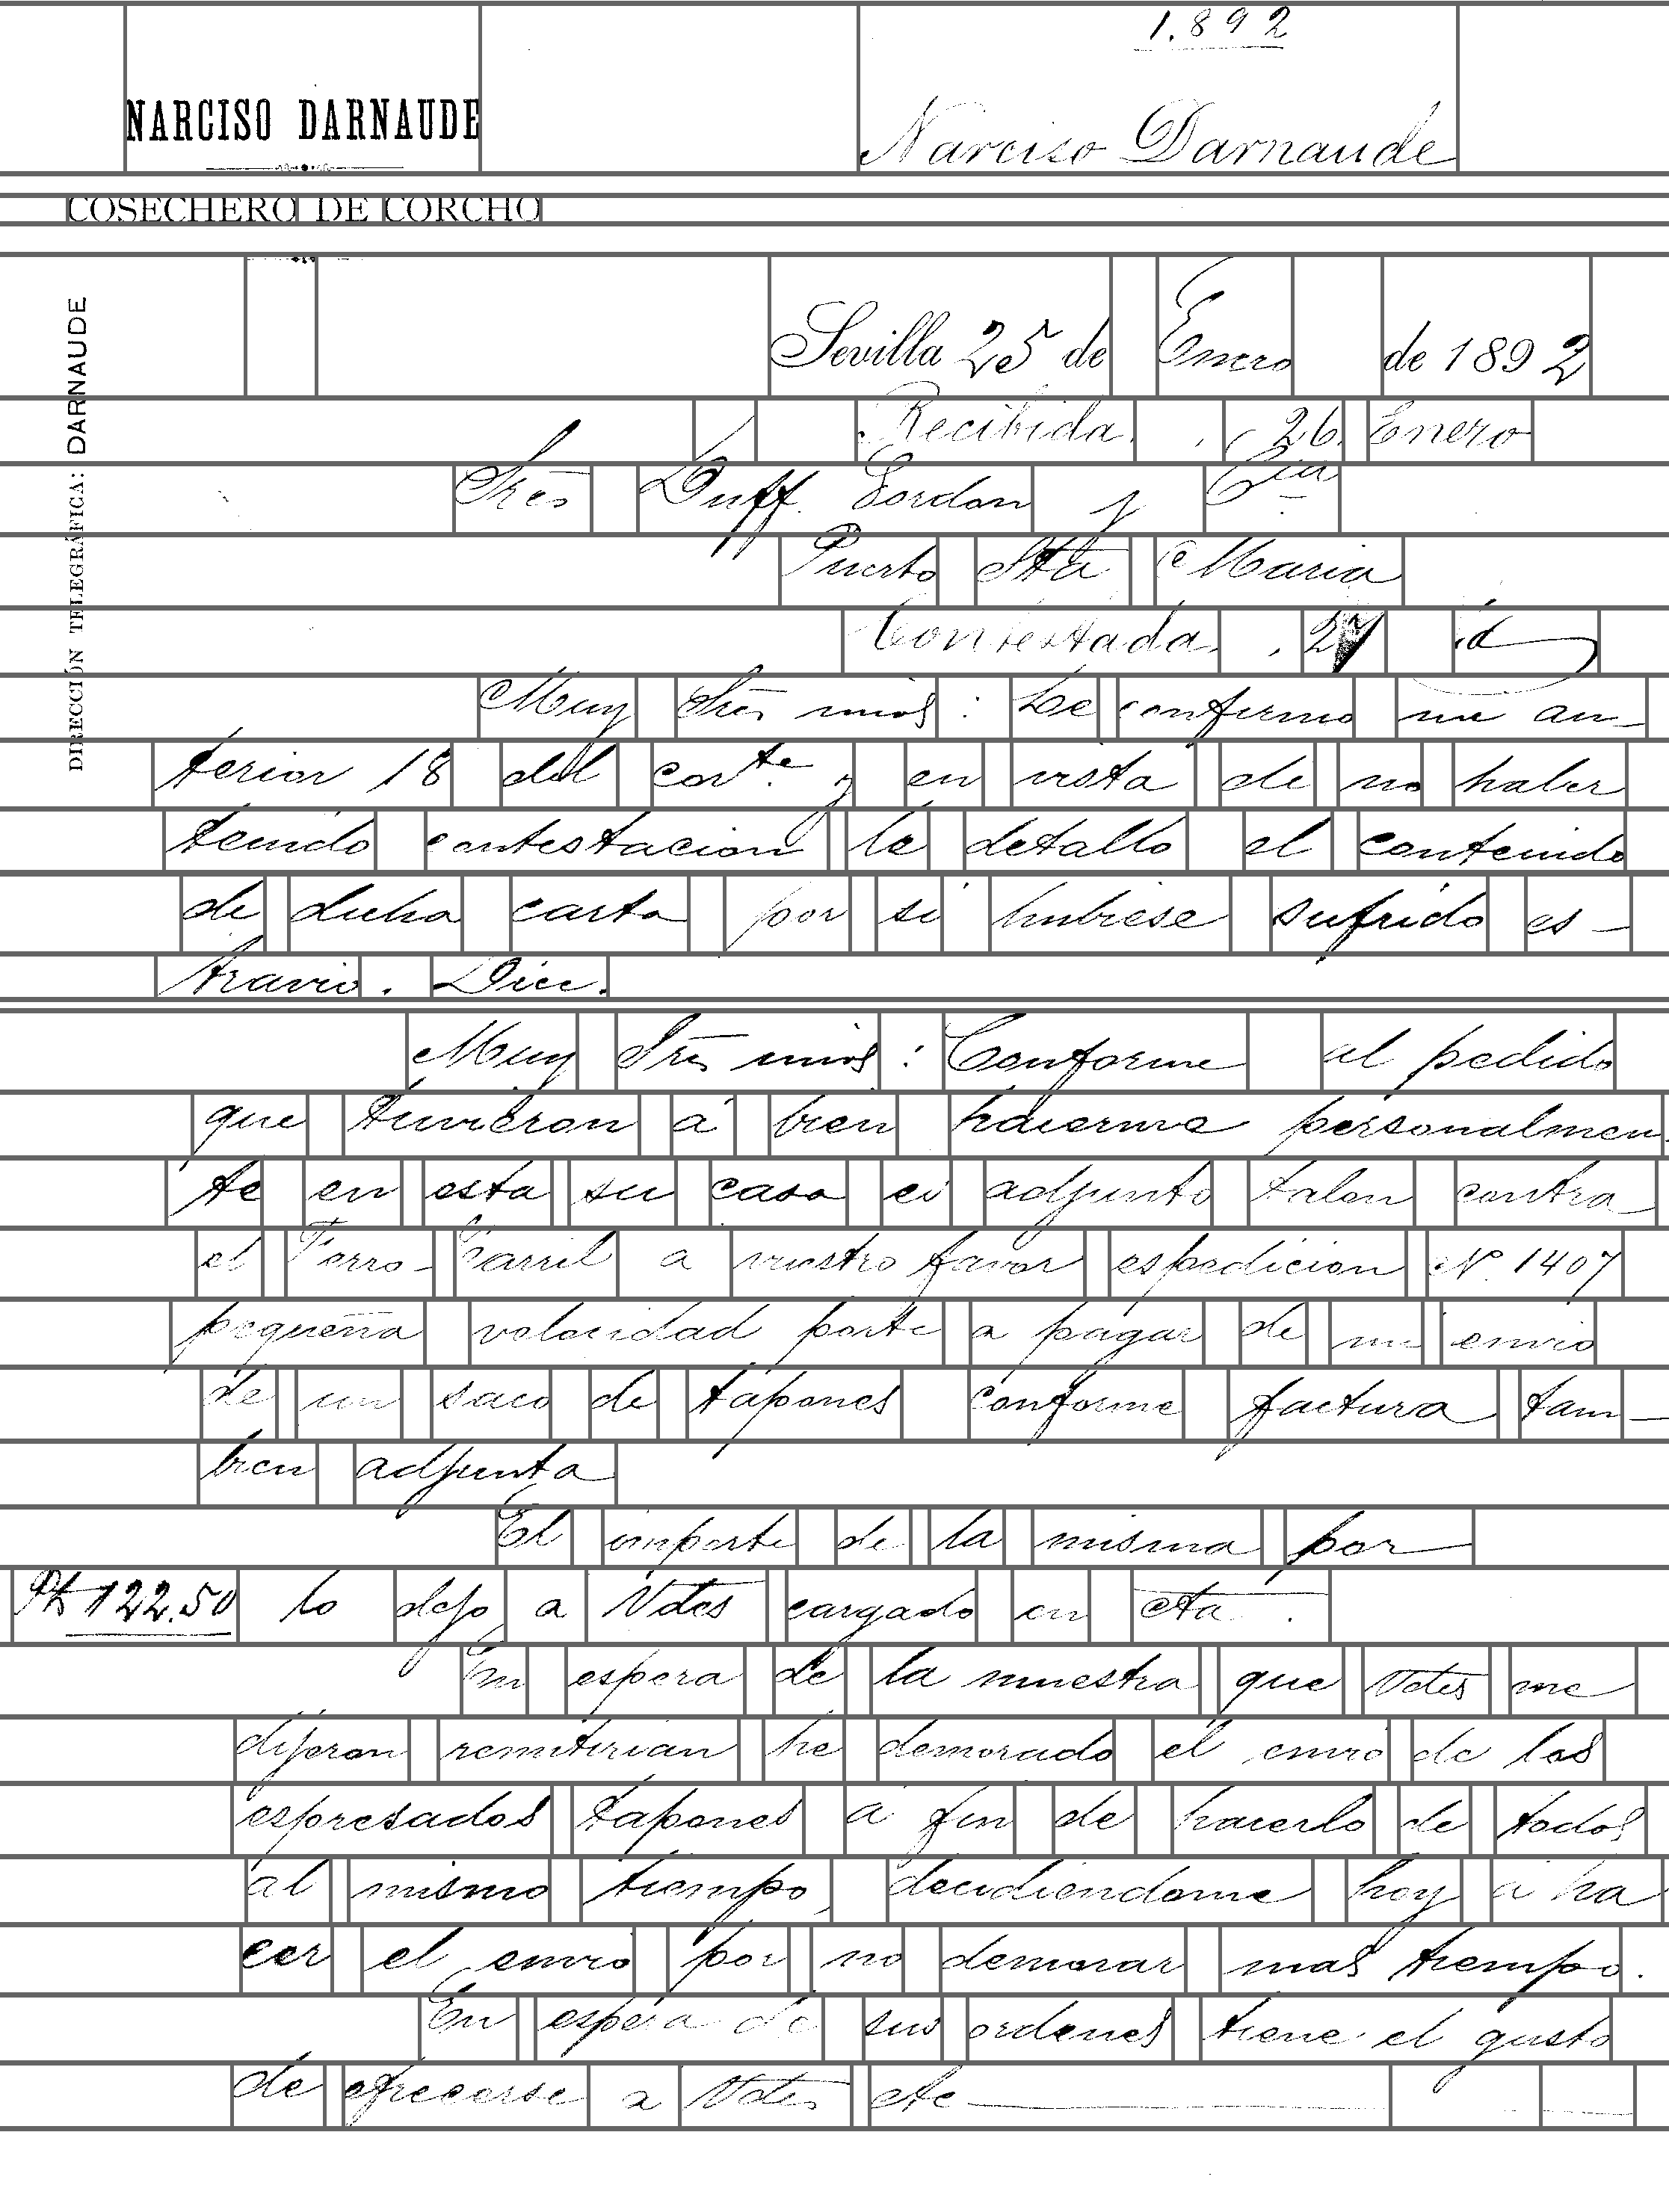 1.892
NARCISO DARNAUDE
Narciso Darnaude
COSECHERO DE CORCHO
DIRECCIÓN TELEGRÁFICA: DARNAUDE
Sevilla 25 de Enero de 1892
Recibida. 26 Enero
Sres Duff Gordon y Cia
Puerto Sta Maria
Contestada. 27 id
Muy Sres mios: Le confirmo mi an-
terior 18 del corte. y en vista de no haber
tenido contestacion le detallo el contenido
de dicha carta por si hubiese sufrido es-
travio. Dice.
Muy Sres mios: Conforme al pedido
que tuvieron á bien hacerme personalmen
te en esta su casa es adjunto talon contra
el Ferro-Carril a vuestro favor espedicion Nº 1407
pequeña velocidad porte a pagar de mi envio
de un saco de tapones conforme factura tam-
bien adjunta
El importe de la misma por
Pts 122.50 lo dejo a Vdes cargado en cta.
En espera de la muestra que Vdes me
dijeron remitirian he demorado el envio de los
espresados tapones a fin de hacerlo de todos
al mismo tiempo, decidiendome hoy a ha
cer el envio por no demorar mas tiempo.
En espera de sus ordenes tiene el gusto
de ofrecerse a Vdes etc